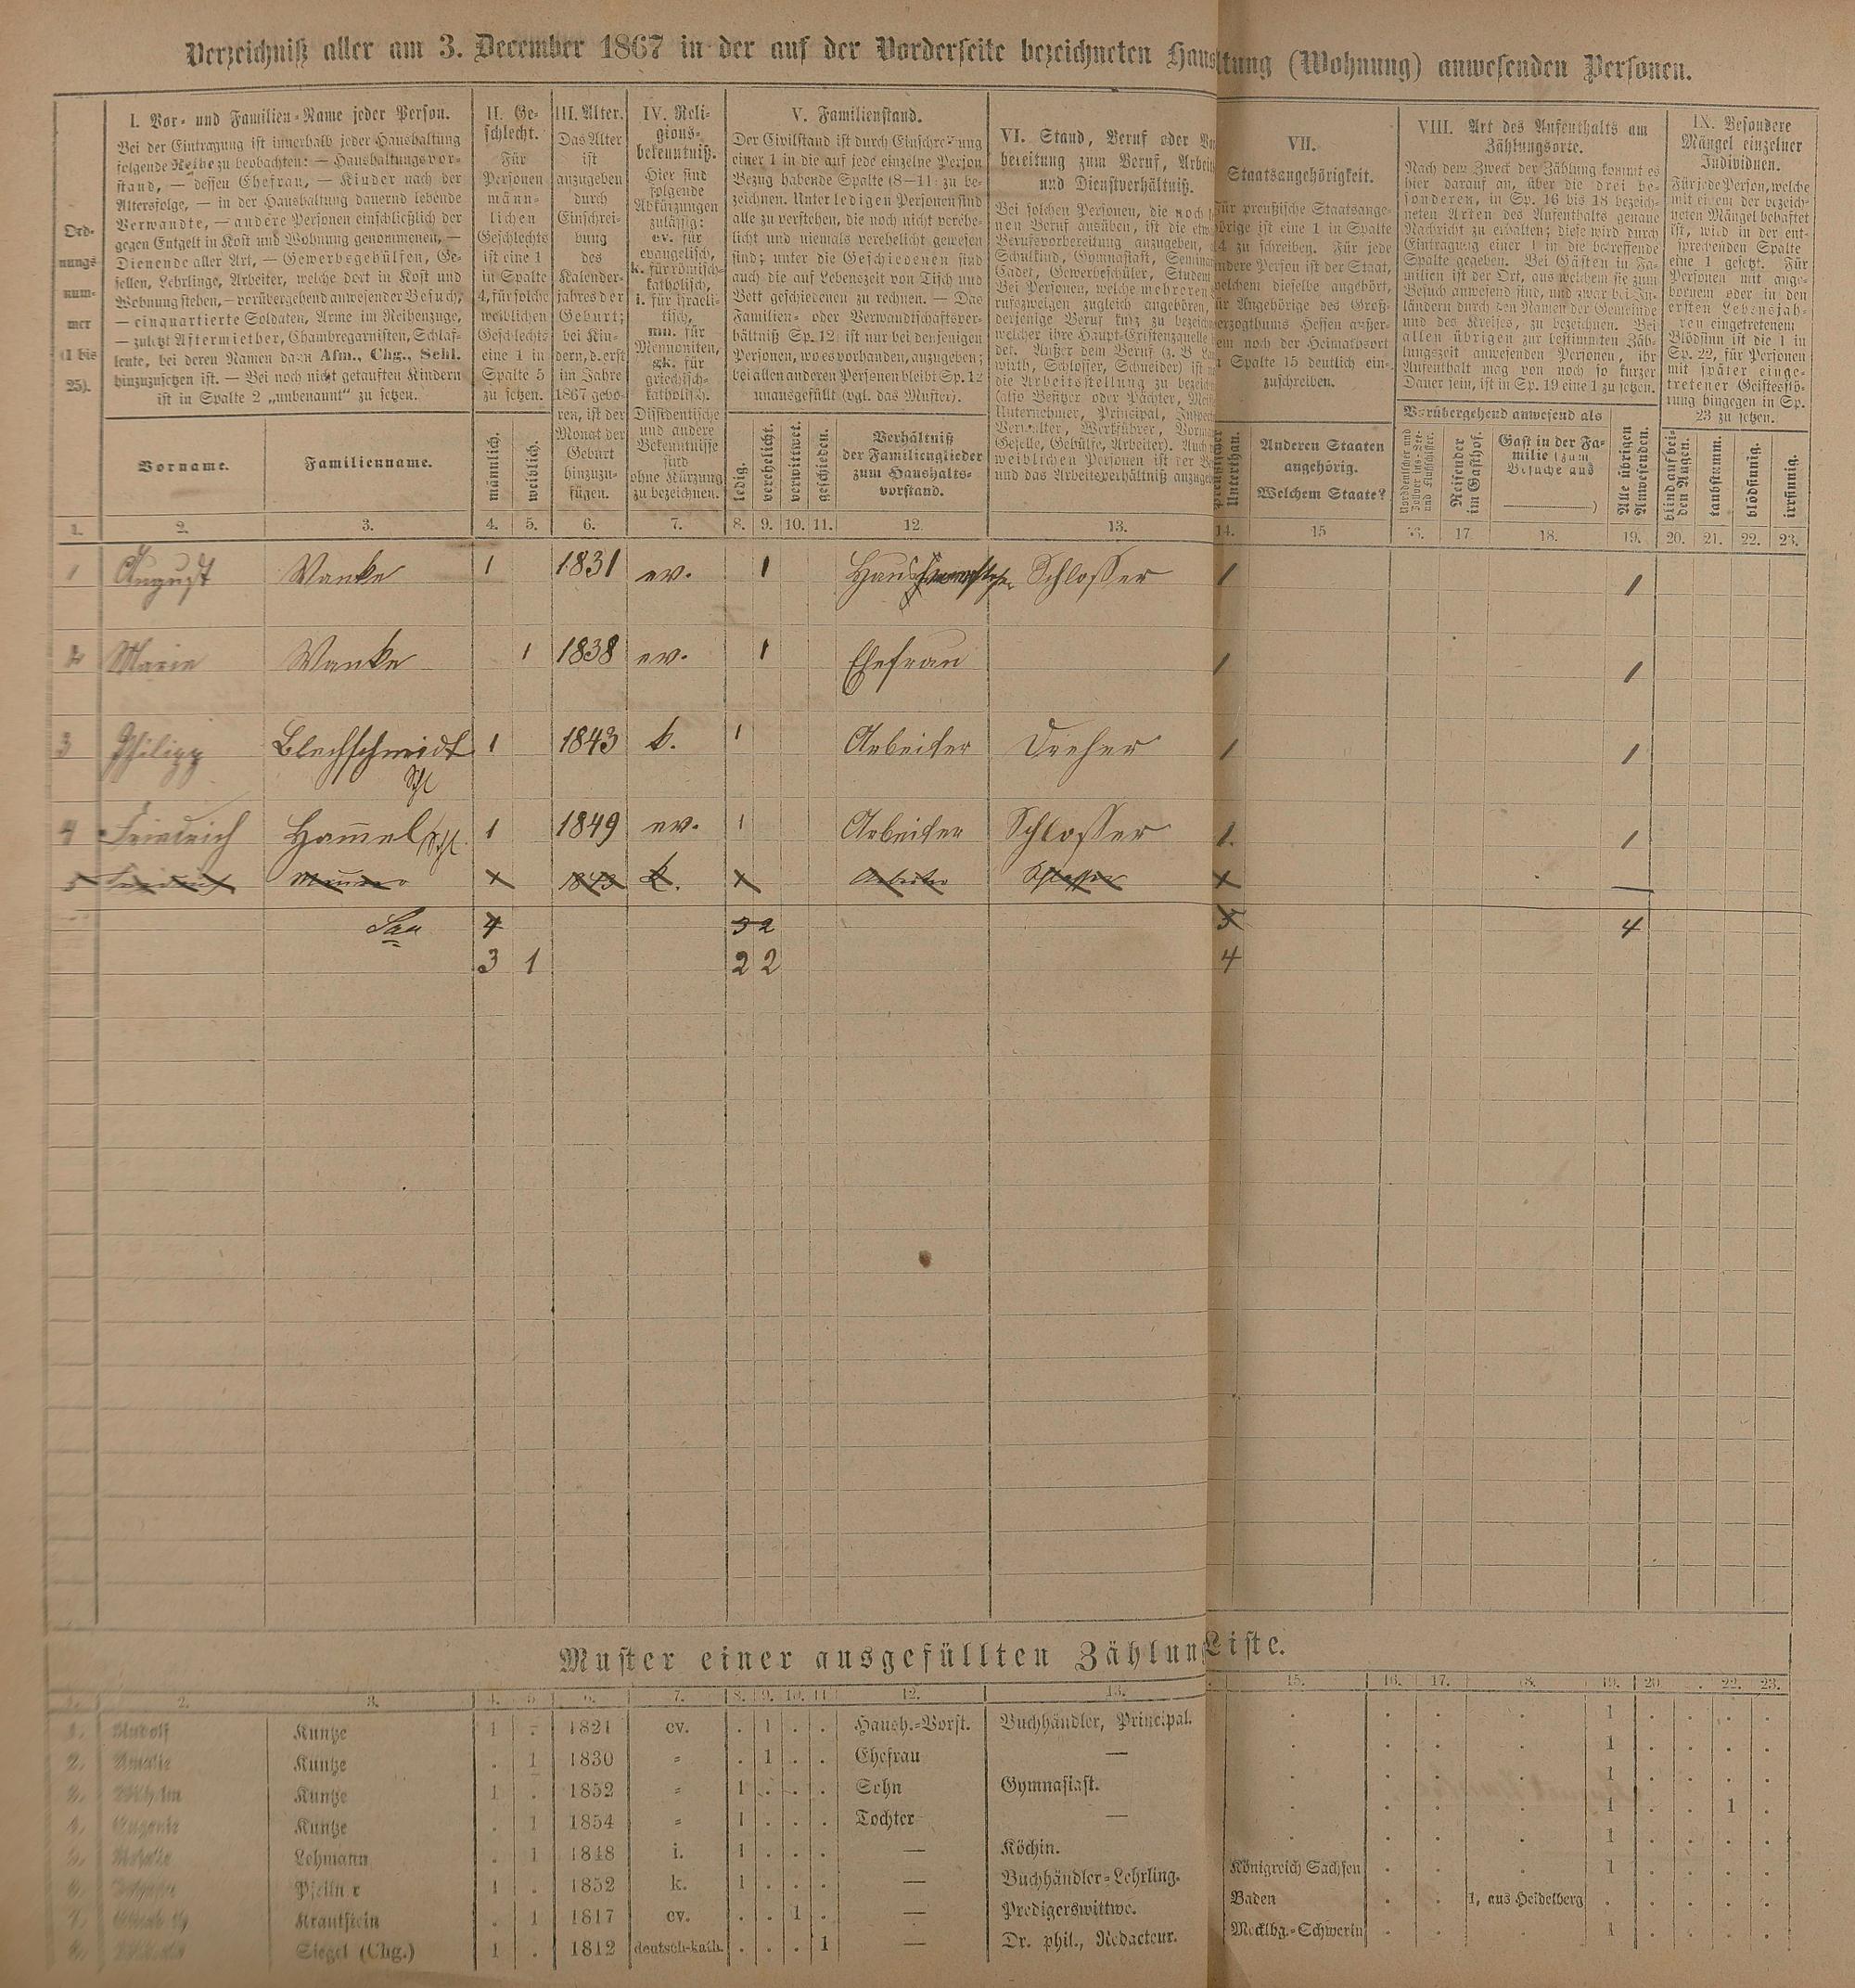 Verzeichniß aller am 3. December 1867 in der auf der Vorderseite bezeichneten Haustung (Wohnung) anwesenden Personen.
Ord-
nungs
num-
mer
(1 bis
25).
I. Vor- und Familien-Name jeder Person.
Bei der Eintragung ist innerhalb jeder Haushaltung
folgende Reihe zu beobachten: — Haushaltungsvor-
stand, — dessen Ehefrau, — Kinder nach der
Altersfolge, — in der Haushaltung dauernd lebende
Verwandte, — andere Personen einschließlich der
gegen Entgelt in Kost und Wohnung genommenen, —
Dienende aller Art, — Gewerbegehülfen, Ge-
sellen, Lehrlinge, Arbeiter, welche dort in Kost und
Wohnung stehen, — vorübergehend anwesender Besuch,
— einquartierte Soldaten, Arme im Reihenzuge,
— zuletzt Aftermiether, Chambregarnisten, Schlaf-
leute, bei deren Namen dann Afm., Chg., Schl.
hinzuzusetzen ist. — Bei noch nicht getauften Kindern
ist in Spalte 2 „unbenannt“ zu setzen.
Vorname.
Familienname.
II. Ge-
schlecht.
Für
Personen
männ-
lichen
Geschlechts
ist eine 1
in Spalte
4, für solche
weiblichen
Geschlechts
eine 1 in
Spalte 5
zu setzen.
männlich.
weiblich.
III. Alter.
Das Alter
ist
anzugeben
durch
Einschrei-
bung
des
Kalender-
jahres der
Geburt;
bei Kin-
dern, d. erst
im Jahre
1867 gebo-
ren, ist der
Monat der
Geburt
hinzuzu-
fügen.
IV. Reli-
gions-
bekenntniß.
Hier sind
folgende
Abkürzungen
zulässig:
ev. für
evangelisch,
k. für römisch-
katholisch,
i. für israeli-
tisch,
mn. für
Mennoniten,
gk. für
griechisch-
katholisch.
Dissidentische
und andere
Bekenntnisse
sind
ohne Kürzung
zu bezeichnen.
V. Familienstand.
Der Civilstand ist durch Einschreibung
einer 1 in die auf jede einzelne Person
Bezug habende Spalte (8—11) zu be-
zeichnen. Unter ledigen Personen sind
alle zu verstehen, die noch nicht verehe-
licht und niemals verehelicht gewesen
sind; unter die Geschiedenen sind
auch die auf Lebenszeit von Tisch und
Bett geschiedenen zu rechnen. — Das
Familien- oder Verwandtschaftsver-
hältniß Sp. 12 ist nur bei denjenigen
Personen, wo es vorhanden, anzugeben;
bei allen anderen Personen bleibt Sp. 12
unausgefüllt (vgl. das Muster).
ledig.
verehelicht.
verwittwet.
geschieden.
Verhältniß
der Familienglieder
zum Haushalts-
vorstand.
VI. Stand, Beruf oder Vo
bereitung zum Beruf, Arbeit
und Dienstverhältniß.
Bei solchen Personen, die noch
nen Beruf ausüben, ist die etw
Berufsvorbereitung anzugeben,
Schulkind, Gymnasiast, Seminar
Cadet, Gewerbeschüler, Student
Bei Personen, welche mehreren
rufszweigen zugleich angehören,
derjenige Beruf kurz zu bezeich
welcher ihre Haupt-Existenzquelle
det. Außer dem Beruf (z. B. Lan
wirth, Schlosser, Schneider) ist
die Arbeitsstellung zu bezeich
(also Besitzer oder Pächter, Meist
Unternehmer, Principal, Inspec
Verwalter, Werkführer, Vorm
Geselle, Gehülfe, Arbeiter). Auch
weiblichen Personen ist der B
und das Arbeitsverhältniß anzuge
VII.
Staatsangehörigkeit.
Für preußische Staatsange-
hörige ist eine 1 in Spalte
14 zu schreiben. Für jede
andere Person ist der Staat,
welchem dieselbe angehört,
für Angehörige des Groß-
herzogthums Hessen außer-
dem noch der Heimatsort
in Spalte 15 deutlich ein-
zuschreiben.
Unterthan.
Anderen Staaten
angehörig.
Welchem Staate?
VIII. Art des Aufenthalts am
Zählungsorte.
Nach dem Zweck der Zählung kommt es
hier darauf an, über die drei be-
sonderen, in Sp. 16 bis 18 bezeich-
neten Arten des Aufenthalts genaue
Nachricht zu erhalten; diese wird durch
Eintragung einer 1 in die betreffende
Spalte gegeben. Bei Gästen in Fa-
milien ist der Ort, aus welchem sie zum
Besuch anwesend sind, und zwar bei In-
ländern durch den Namen der Gemeinde
und des Kreises, zu bezeichnen. Bei
allen übrigen zur bestimmten Zäh-
lungszeit anwesenden Personen, ihr
Aufenthalt mag von noch so kurzer
Dauer sein, ist in Sp. 19 eine 1 zu setzen.
Vorübergehend anwesend als
Norddeutscher und
Zollver.ins-See-
und Flußschiffer.
Reisender
im Gasthof.
Gast in der Fa-
milie (zum
Besuche aus
)
Alle übrigen
Anwesenden.
IX. Besondere
Mängel einzelner
Individuen.
Für jede Person, welche
mit einem der bezeich-
neten Mängel behaftet
ist, wird in der ent-
sprechenden Spalte
eine 1 gesetzt. Für
Personen mit ange-
bornem oder in den
ersten Lebensjah-
ren eingetretenem
Blödsinn ist die 1 in
Sp. 22, für Personen
mit später einge-
tretener Geistesstö-
rung hingegen in Sp.
23 zu setzen.
blind auf bei-
den Augen.
taubstumm.
blödsinnig.
irrsinnig.
1. 2. 3. 4. 5. 6. 7. 8. 9. 10. 11. 12. 13. 14. 15 16. 17 18. 19. 20. 21. 22. 23.
1 August Wanke 1 1831 ev. 1 Haus Schlosser 1 1
2 Marie Wanke 1 1838 ev. 1 Ehefrau 1 1
3 Philipp Blechschmidt 1 1843 k. 1 Arbeiter Dreher 1 1
Schl
4 Friedrich Ham̄el Schl. 1 1849 ev. 1 Arbeiter Schlosser 1. 1
5 1843 k. Arbeiter Schlosser —
4 3 2 5 4
3 1 2 2 4
Muster einer ausgefüllten ZählunListe.
1. 2. 3. 4. 5 6. 7. 8. 9. 10. 11 12. 13. 15. 16. 17. 18. 19. 20 . 22. 23.
1. Rudolf Kuntze 1 . 1821 ev. . 1 . . Haush.-Vorst. Buchhändler, Principal. . . . . 1 . . . .
2. Amalie Kuntze . 1 1830 = . 1 . . Ehefrau — . . . . 1 . . . .
3. Wilhelm Kuntze 1 . 1852 = 1 . . . Sohn Gymnasiast. . . . . 1 . . . .
4. Kuntze . 1 1854 = 1 . . . Tochter — . . . . 1 . . 1 .
5. Lehmann . 1 1848 i. 1 . . . — Köchin. . . . . 1 . . . .
6. 1 . 1852 k. 1 . . . — Buchhändler-Lehrling. Königreich Sachsen . . . 1 . . . .
7. Krautstein . 1 1817 ev. . . 1 . — Predigerswittwe. Baden . . 1, aus Heidelberg . . . . .
8. Siegel (Chg.) 1 . 1812 deutsch-kath. . . . 1 — Dr. phil., Redacteur. Mecklbg.-Schwerin . . . 1 . . . .